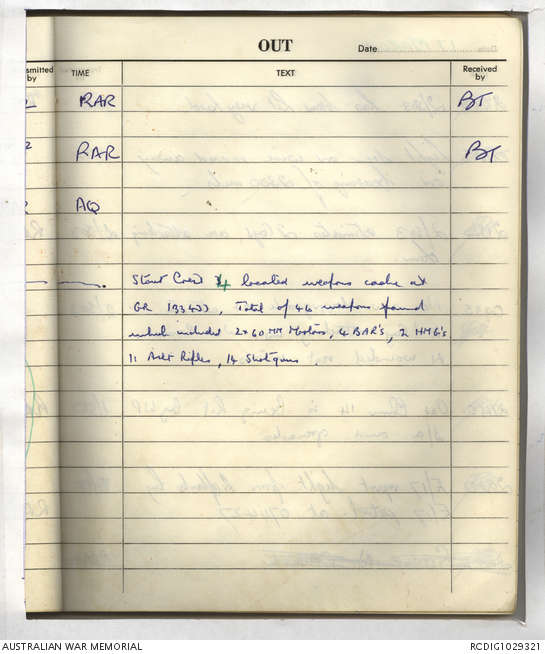 OUT
Date
smitted by
TIME
TEXT
Received by
RAR
BT
2
RAR
BT
AQ
located weapons cache at
GR 133433, Total of 46 weapons found
which included 2x60 MM Mortars, 4 BAR's, 2 HMG's
11 Rifles, 14 Shotguns.
AUSTRALIAN WAR MEMORIAL
RCDIG1029321